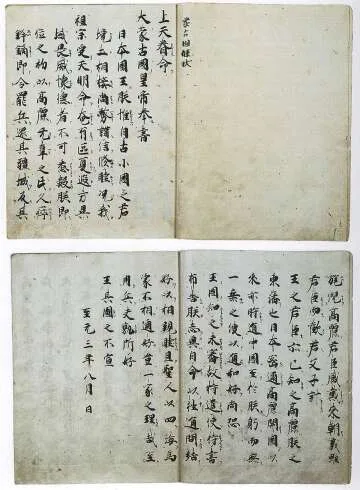 蒙古國牒状
上天眷命
大蒙古國皇帝奉書
日本國王朕惟自古小國之君
境土相接尚務講信修睦況我
祖宗受天明命奄有區夏遐方異
域畏威懷德者不可悉數朕即
位之初以高麗无辜之民久瘁
鋒鏑即令罷兵還其疆域反其
旄倪高麗君臣感戴来朝義雖
君臣而歡若父子計
王之君臣亦已知之高麗朕之
東藩也日本密迩高麗開國以
来亦時通中國至於朕躬而無
一乗之使以通和好尚恐
王國知之未審故特遣使持書
布告朕志冀自今以往通問結
好以相親睦且聖人以四海為
家不相通好豈一家之理哉至
用兵夫孰所好
王其圖之不宣
至元三年八月 日